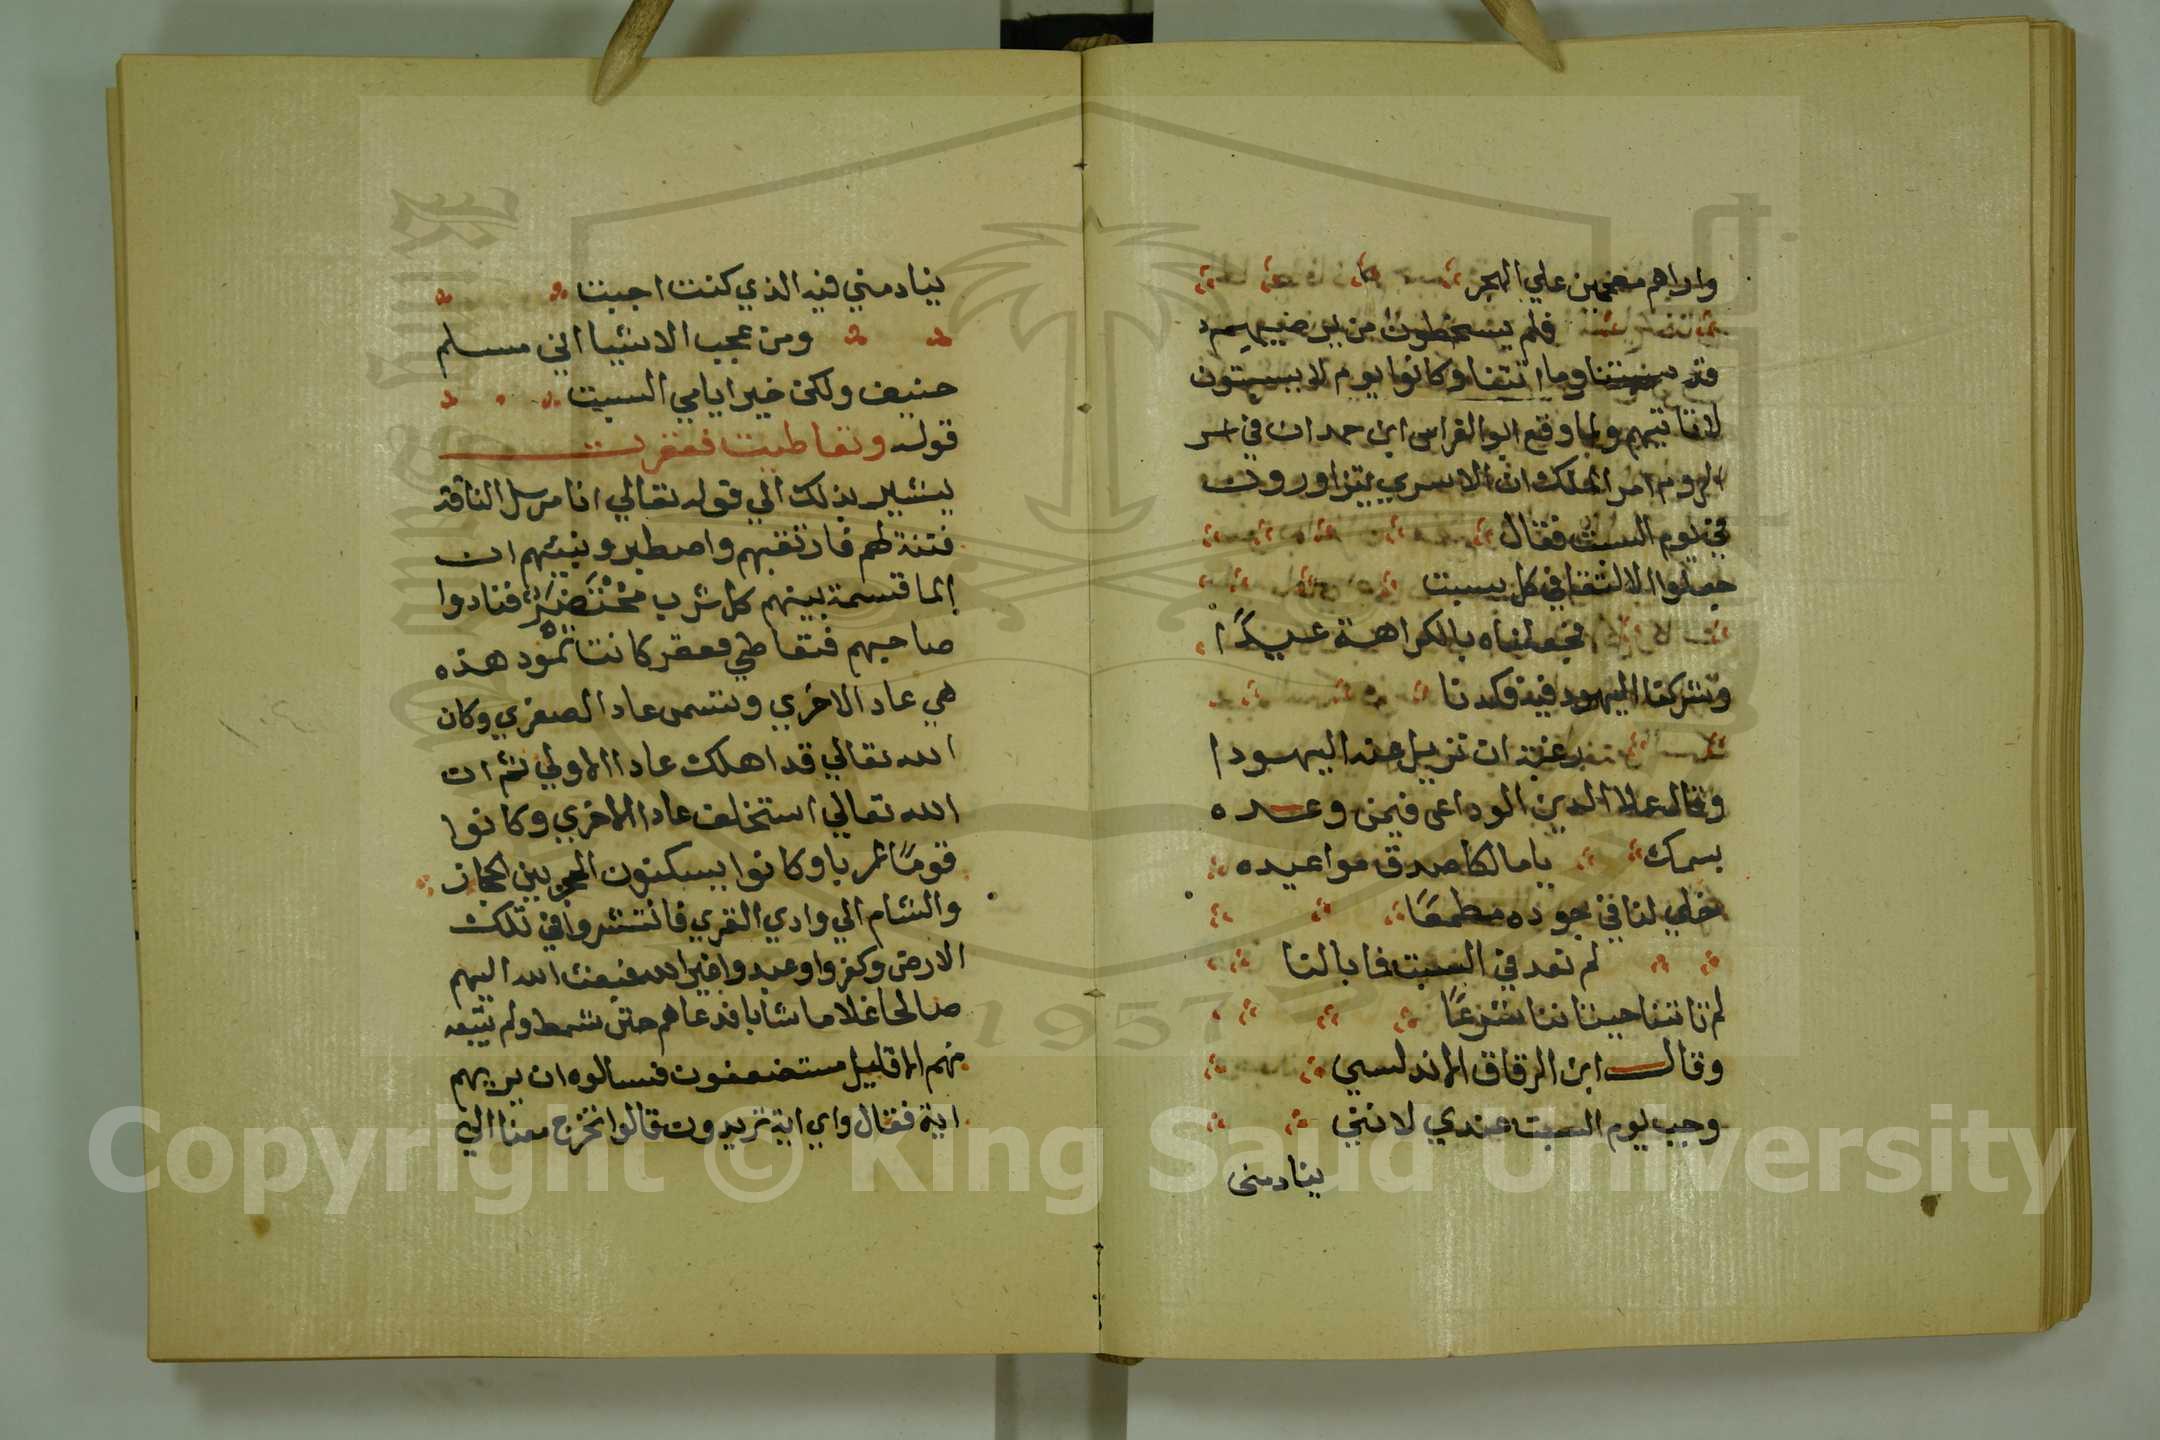 واراهم مصممين علي الهجر
فلم يسخطون من يرضيهم
قد سبتنا وما اتتنا وكانوا يوم لا يسبتون
لا تاتيهم ولما وقع ابو الفراس ابن حمدان في اسر
الروم امر الملك ان الاسري يتزاورون
في يوم السبت فقال
جعلوا الالتقا في كل سبت
فجعلناه بالكراهة عيدا
وشركنا اليهود فيه فكدنا
رغبة ان نزيل عنه اليهودا
وقال علا الدين الوداعي فيمن وعده
بسمك يا مالكا صدق مواعيده
خلي لنا في جوده مطمعًا
لم نعد في السبت فما بالنا
لم تاتنا حيتاننا شرعًا
وقال ابن الزقاق الاندلسي
وحبب يوم السبت عندي لانني
ينادمني
ينادمني فيه الذي كنت احببت
ومن عجب الاشيا اني مسلم
حنيف ولكن خير ايامي السبت
قوله وتعاطيت فعقرت
يشير بذلك الي قوله تعالي انا مرسل الناقة
فتنة لهم فارتقبهم واصطبر ونبئهم ان
الما قسمة بينهم كل شرب محتضر فنادوا
صاحبهم فتعاطي فعقر كانت ثمود هذه
هي عاد الاخري وتسمي عاد الصغري وكان
الله تعالي قد اهلك عادا الاولي ثم ان
الله تعالي استخلف عادا الاخري وكانوا
قومًا عربا وكانوا يسكنون الحجر بين الحجاز
والشام الي وادي القري فانتشروا في تلك
الارض وكفروا وعبدوا غير الله فبعث الله اليهم
صالحا غلاما شابا فدعاهم حتي شمط ولم يتبعه
منهم الا قليل مستضعفون فسالوه ان يريهم
اية فقال واي اية تريدون قالوا تخرج معنا الي
Copyright © King Saud University
1957